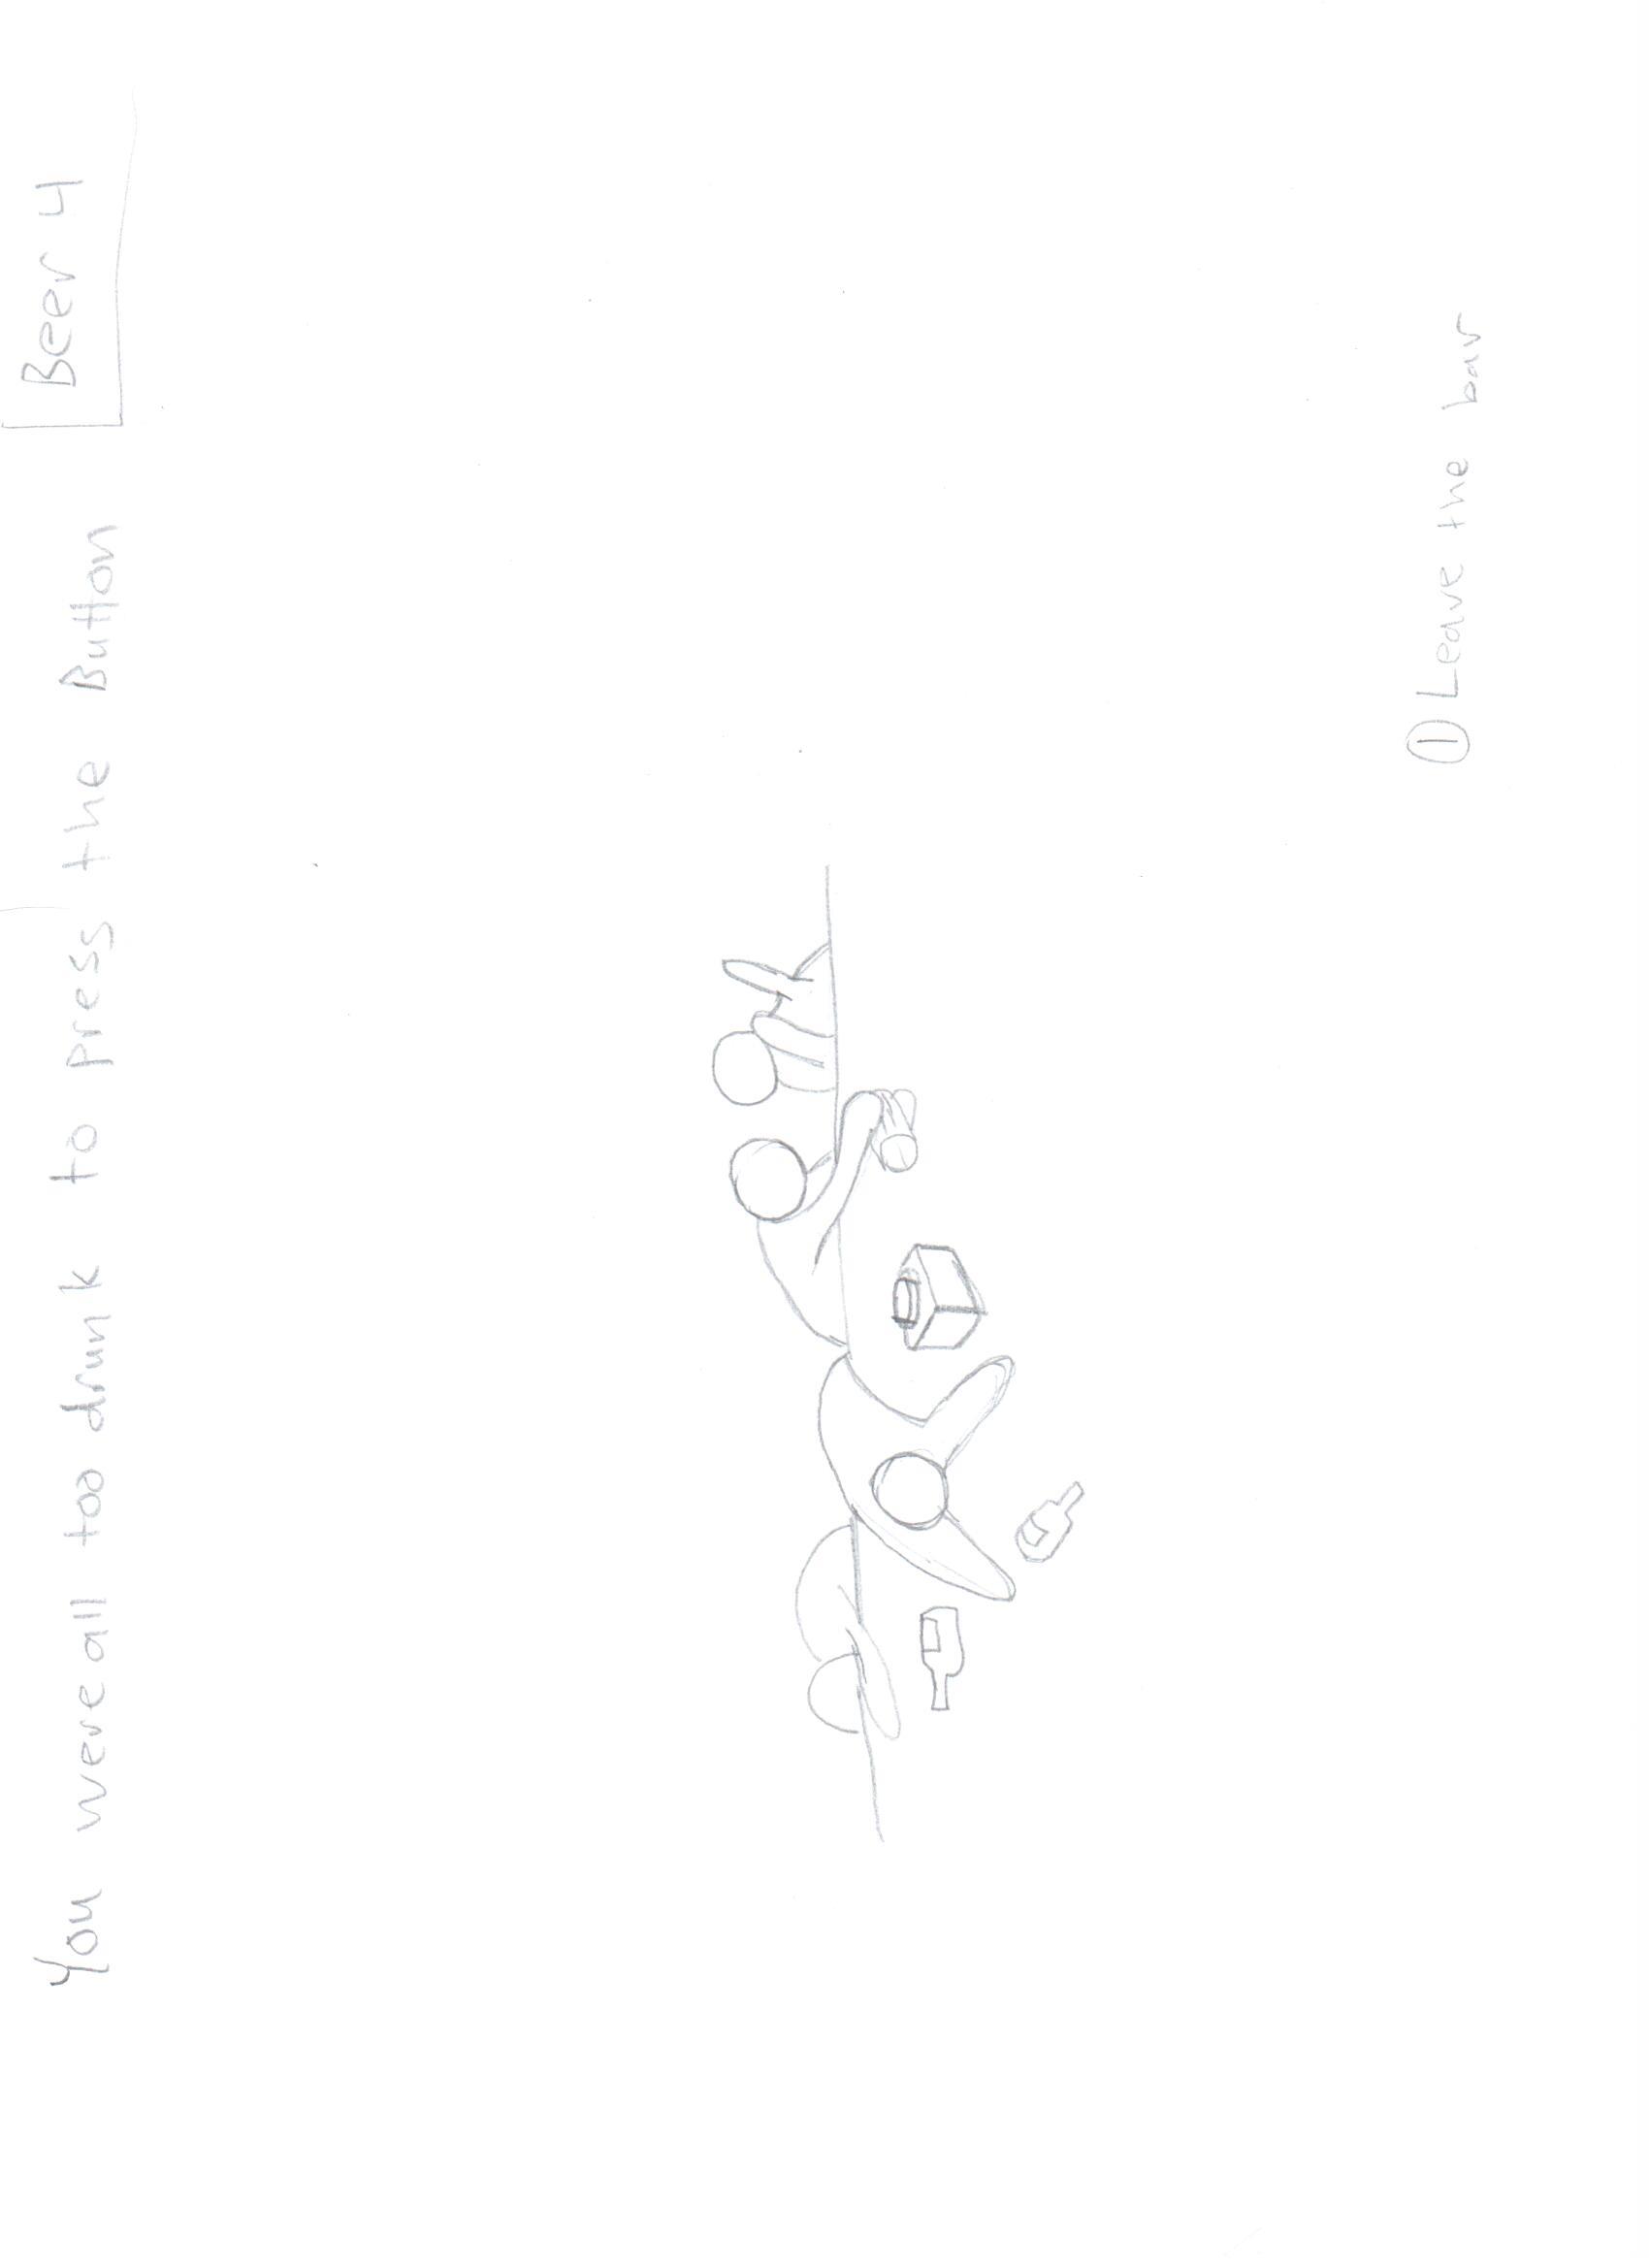 You were all too drunk to press the Button
Beer 4
① Leave the bar